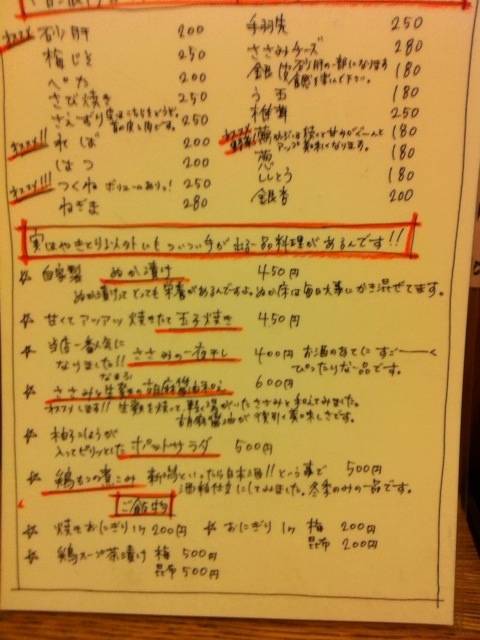 オススメ 砂肝 200
梅じそ 250
ペタ 200
さび焼き 250
さえずり 250
オススメ!! れば 200
はつ 200
オススメ!!! つくね ボリュームあり♪! 250
ねぎま 280
手羽先 250
ささみチーズ 280
銀皮 砂肝の一部になります 180
食感を楽しんで下さい。
う玉 180
椎茸 250
180
葱 180
ししとう 180
銀杏 200
実はやきとり以外にもついつい手が出る一品料理があるんです!!
自家製 ぬか漬け 450円
ぬか漬けってとっても栄養があるんですよ。ぬか床は毎日大事にかき混ぜてます。
甘くてアツアツ 焼きたて玉子焼き 450円
当店一番人気に
なりました!! ささみの一夜干し 400円 お酒のあてにすごーーーく
ぴったりな一品です。
ささみと生麩の胡麻醤油和え 600円
オススメします!! 生麩を焼いて、軽く湯がいたささみと和えてみました。
胡麻醤油が後引く美味しさです。
柚子こしょうが
入ってピリッとした ポテトサラダ 500円
鶏もつの煮こみ 新潟といったら日本酒!!という事で 500円
酒粕仕立にしてみました。冬季のみの一品です。
ご飯物
焼きおにぎり 1ヶ 200円 おにぎり 1ヶ 梅 200円
昆布 200円
鶏スープ茶漬け 梅 500円
昆布 500円